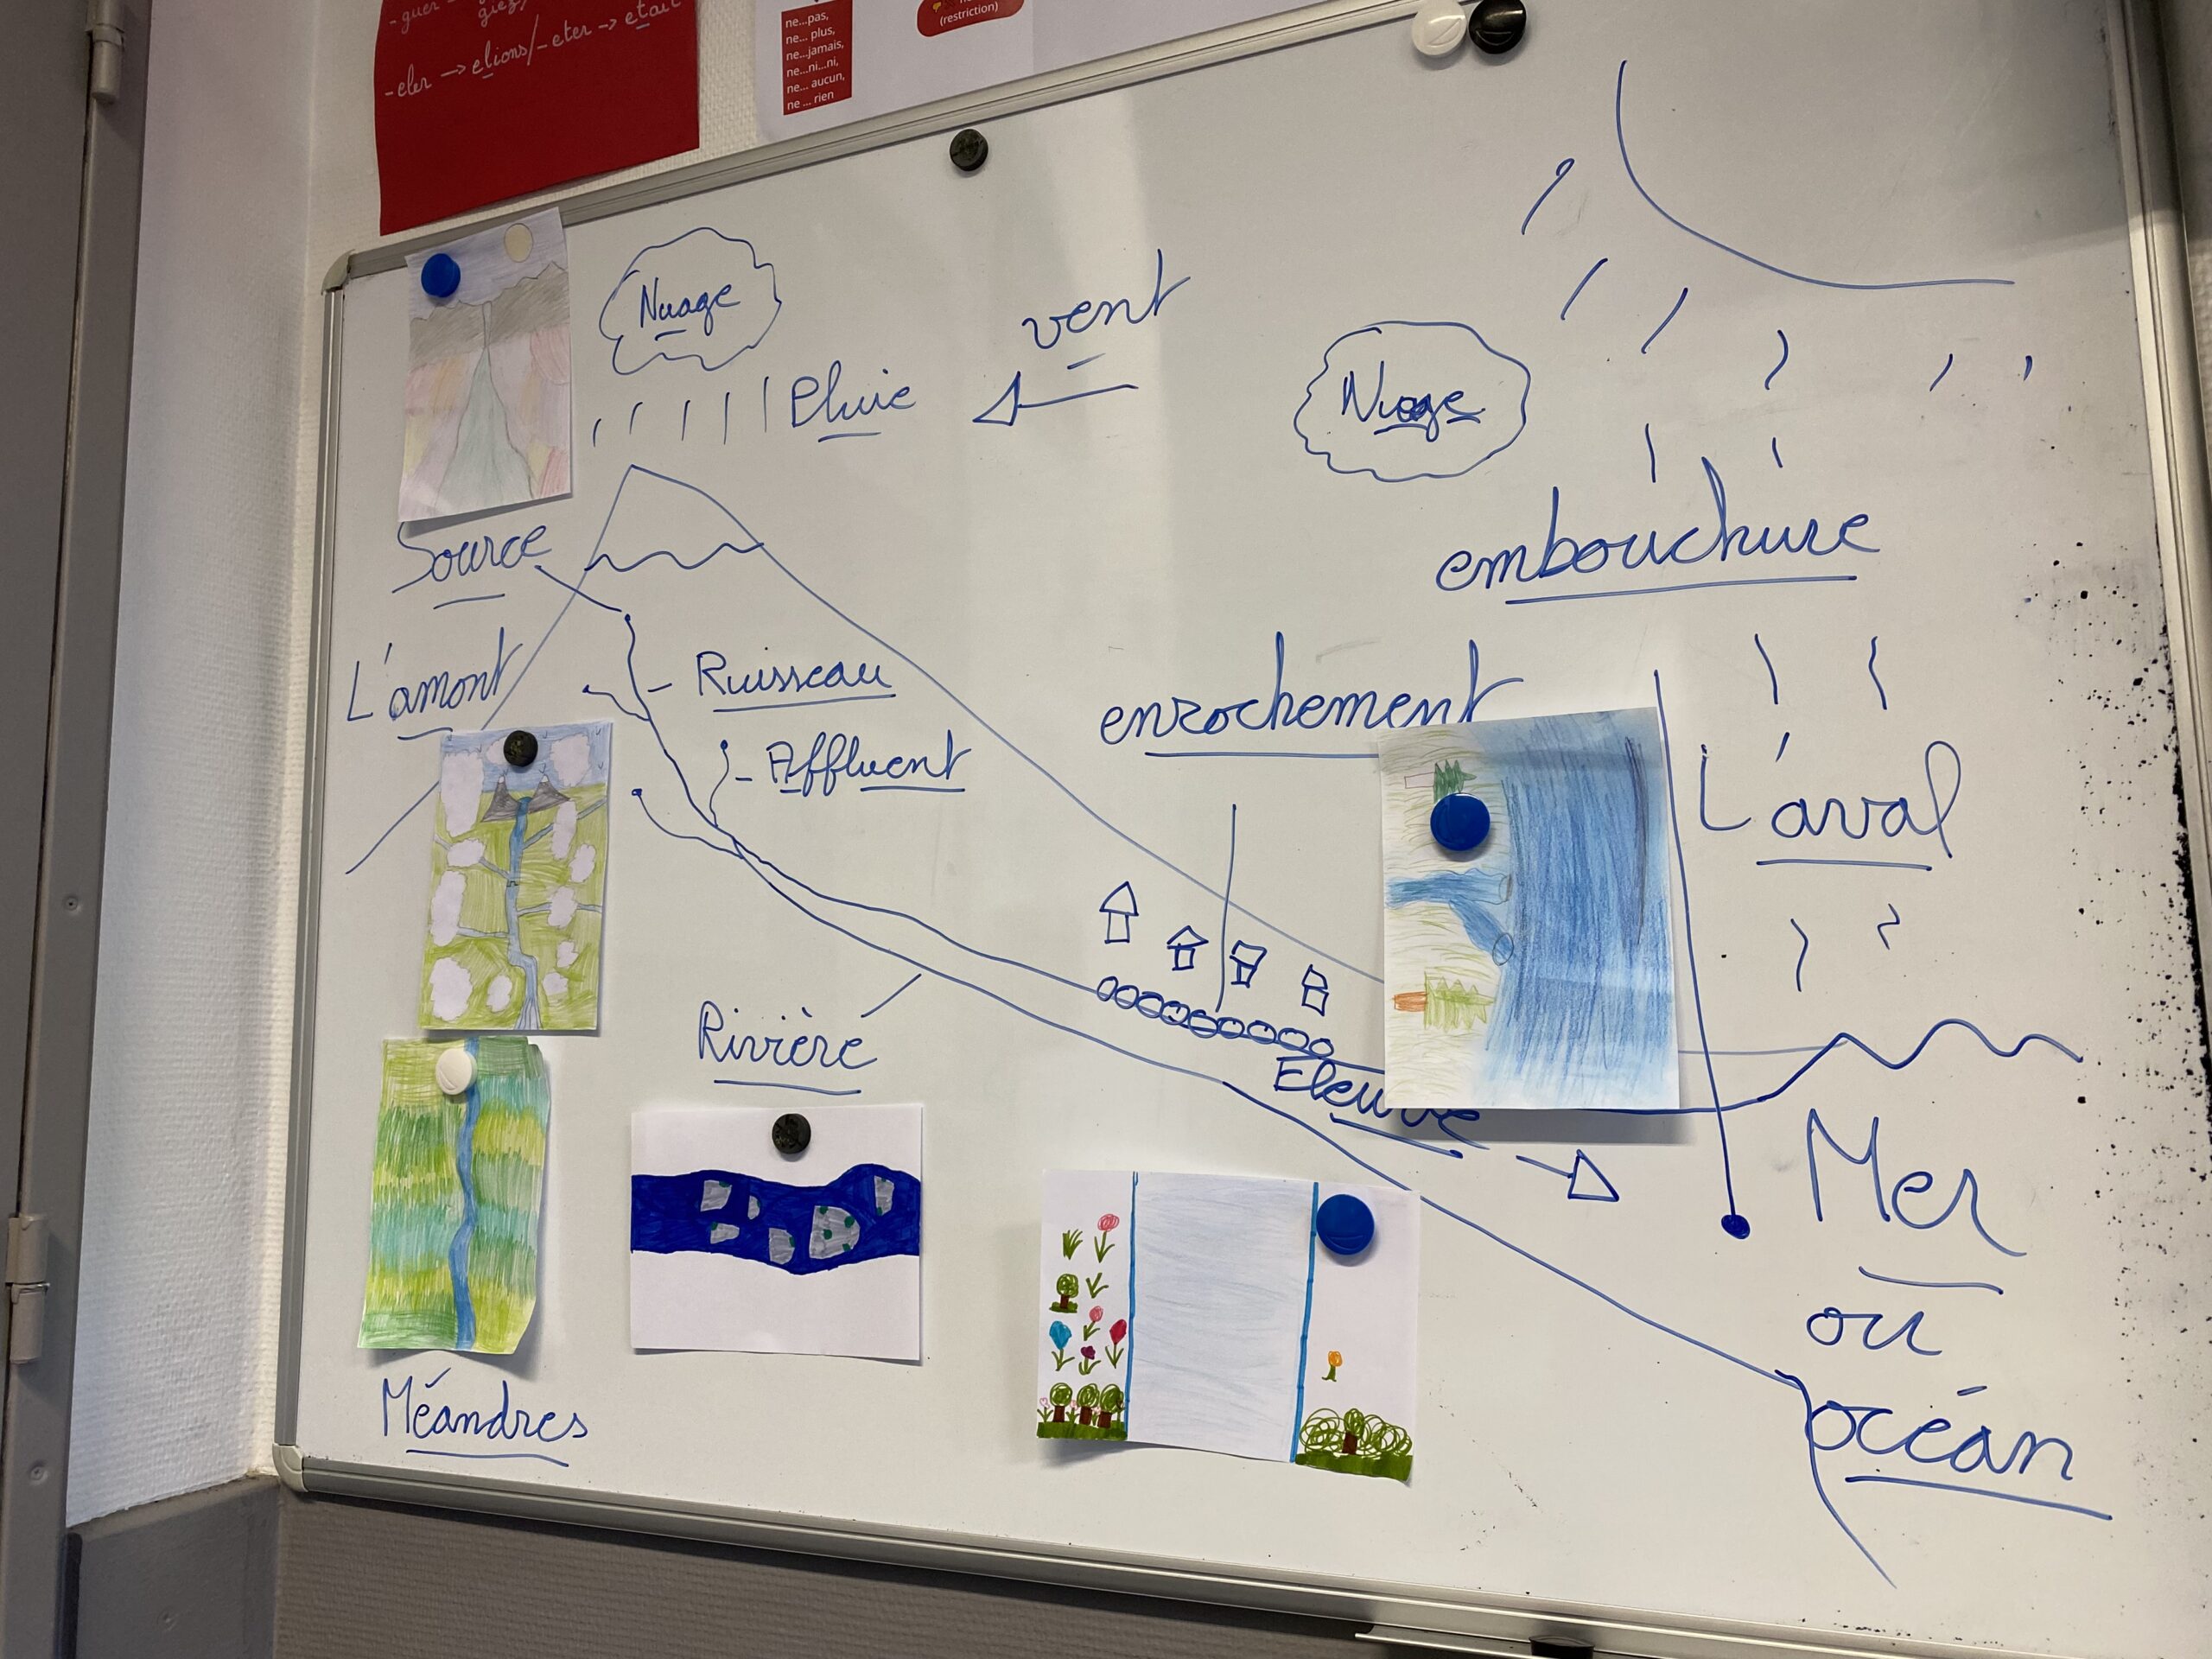 -guer
giez,
-eler → elions/-eter → etait
ne...pas,
ne... plus,
ne...jamais,
ne...ni...ni,
ne... aucun,
ne ... rien
(restriction)
Nuage
vent
Pluie
Nuage
Source
embouchure
L'amont
Ruisseau
enrochement
Affluent
L'aval
Rivière
Fleuve
Mer
ou
océan
Méandres